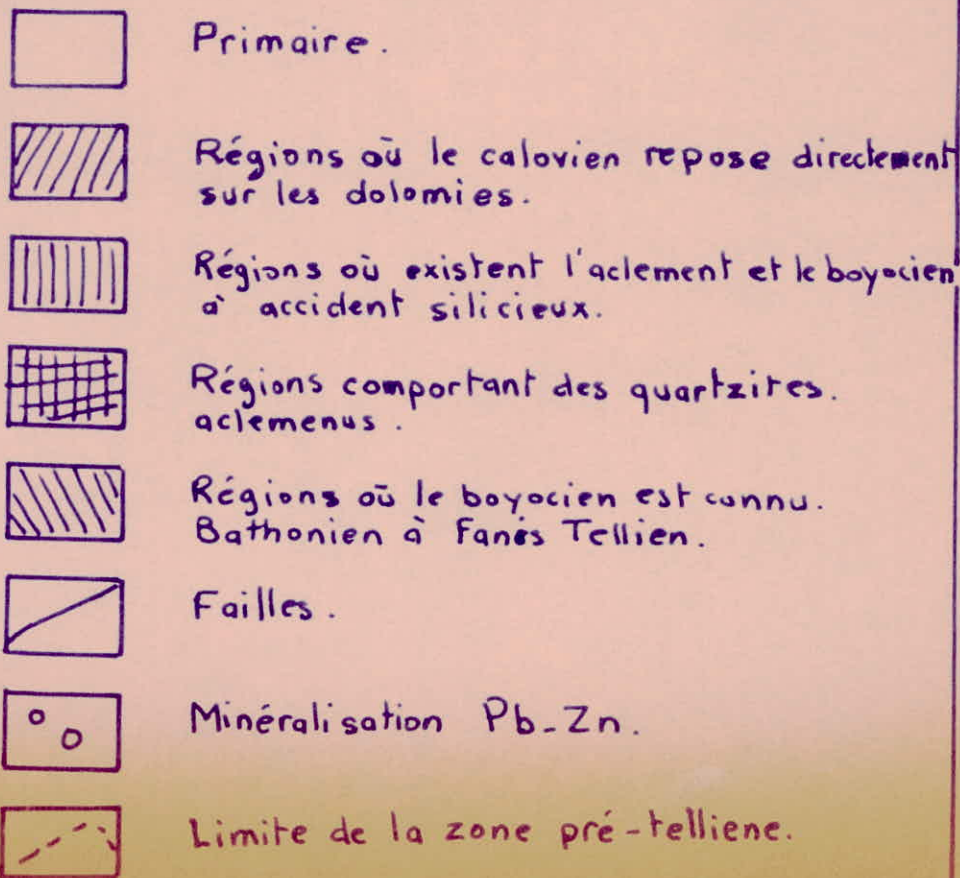 Primaire.
Régions où le calovien repose directement
sur les dolomies.
Régions où existent l'aclement et le boyocien
à accident silicieux.
Régions comportant des quartzites.
aclemenus.
Régions où le boyocien est connu.
Bathonien à Fanés Tellien.
Failles.
Minéralisation Pb-Zn.
Limite de la zone pré-telliene.